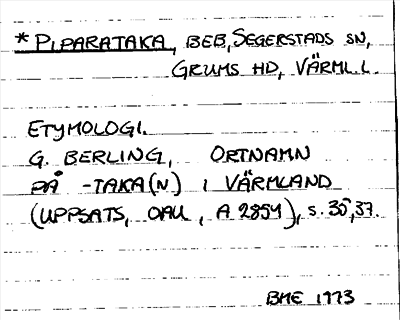 * PIPARATAKA, BEB, SEGERSTADS SN,
GRUMS HD, VÄRML. L.
ETYMOLOGI.
G. BERLING, ORTNAMN
PÅ -TAKA(N) I VÄRMLAND
(UPPSATS, OAU, A 2854), S. 35, 37.
BME 1973